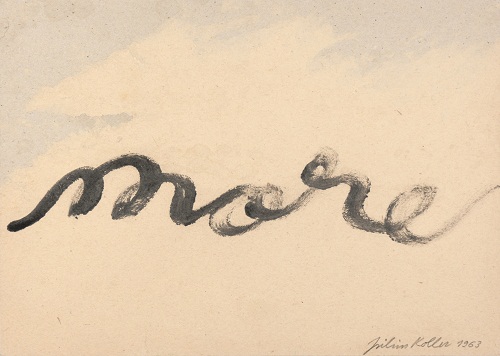 more
Július Koller 1963